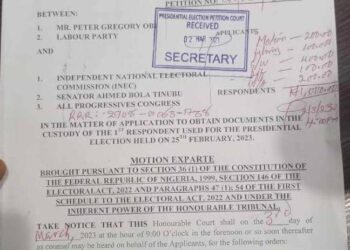 PETITION NO
BETWEEN:
1. MR. PETER GREGORY OB
2. LABOUR PARTY
APPLICANTS
PRESIDENTIAL ELECTION PETITION COURT
RECEIVED
02 MAR
SECRETARY
Motion - 200.00
1. INDEPENDENT NATIONAL ELECTORAL
COMMISSION (INEC)
2. SENATOR AHMED BOLA TINUBU
3. ALL PROGRESSIVES CONGRESS
RESPONDENTS
IN THE MATTER OF APPLICATION TO OBTAIN DOCUMENTS IN THE
CUSTODY OF THE 1ST RESPONDENT USED FOR THE PRESIDENTIAL
ELECTION HELD ON 25TH FEBRUARY, 2023.
MOTION EXPARTE
BROUGHT PURSUANT TO SECTION 36 (1) OF THE CONSTITUTION OF
THE FEDERAL REPUBLIC OF NIGERIA, 1999, SECTION 146 OF THE
ELECTORAL ACT, 2022 AND PARAGRAPHS 47 (1); 54 OF THE FIRST
SCHEDULE TO THE ELECTORAL ACT, 2022 AND UNDER THE
INHERENT POWER OF THE HONOURABLE TRIBUNAL.
TAKE NOTICE THAT This Honourable Court shall on 3rd day of
March, 2023 at the hour of 9:00 O'clock in the forenoon or so soon thereafter
as counsel may be heard on behalf of the Applicants, for the following orders: